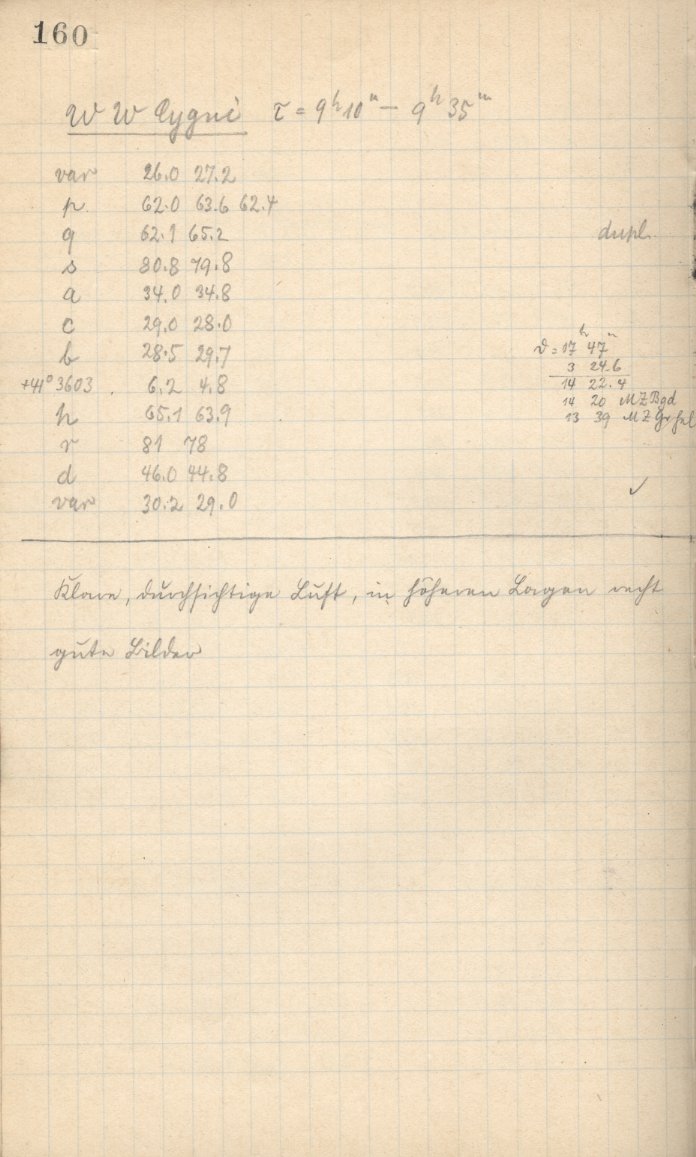 160
W W Cygni τ = 9h 10m – 9h 35m
var 26.0 27.2
p 62.0 63.6 62.4
q 62.1 65.2 dupl.
s 80.8 79.8
a 34.0 34.8
c 29.0 28.0
b 28.5 29.7
ϑ = 17h 47m
3 24.6
+41° 3603 6.2 4.8
14 22.4
14 20 MZ Bgd
h 65.1 63.9
13 39 MZ Gr
r 81 78
d 46.0 44.8
var 30.2 29.0 ✓
Klare, durchsichtige Luft, in höheren Lagen recht
gute Bilder